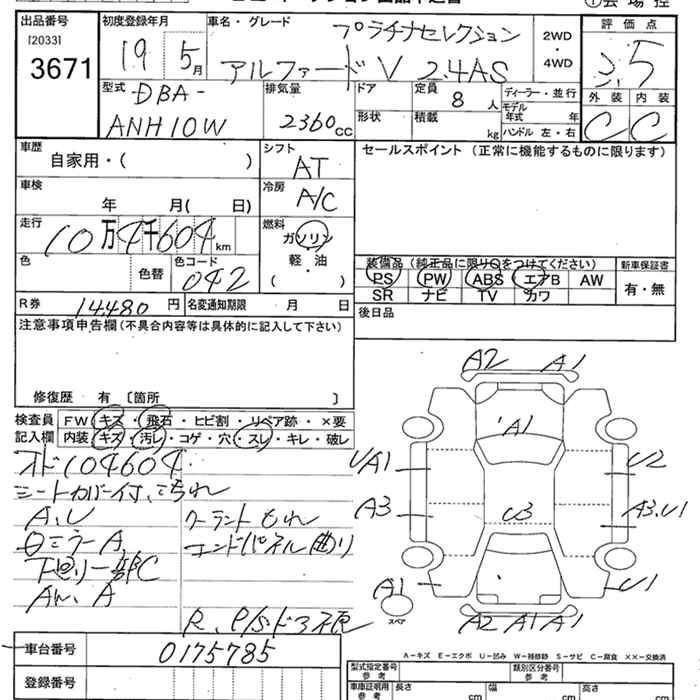 出品番号
[2033]
3671
初度登録年月
19 5月
車名・グレード
プラチナセレクション
アルファード V 2.4AS
2WD
・
4WD
評価点
3.5
外装 内装
C C
型式
DBA-
ANH10W
排気量
2360cc
ドア
形状
定員 8人
積載 kg
ディーラー・並行
モデル
年式 年
ハンドル 左・右
車歴
自家用・( )
シフト
AT
セールスポイント (正常に機能するものに限ります)
車検
年 月( 日)
冷房
A/C
走行
10万4千604km
燃料
ガソリン
軽・油
( )
色
色替
色コード
042
装備品(純正品に限り○をつけてください)
PS PW ABS エアB AW
SR ナビ TV カワ
新車保証書
有・無
R券 14,480円
名変通知期限 月 日
後日品
注意事項申告欄(不具合内容等は具体的に記入して下さい)
修復歴 有 〔箇所 〕
検査員
記入欄
FW キズ・飛石・ヒビ割・リペア跡・×要
内装 キズ・汚レ・コゲ・穴・スレ・キレ・破レ
オド104604
シートカバー付、こもれ
A、U
ロミラーA
下廻り一部C
AW、A
クーラントもれ
エンドパネル曲り
A2 A1
A1
UA1 U2
A3 U3 A3,U1
A1 U1
スペア
A2 A1 A1
A-キズ E-エクボ U-凹み W-補修跡 S-サビ C-腐食 ××-交換済
車台番号
0175785
登録番号
型式指定番号
参考
類別区分番号
参考
車庫証明用
参考
長さ cm
幅 cm
高さ cm